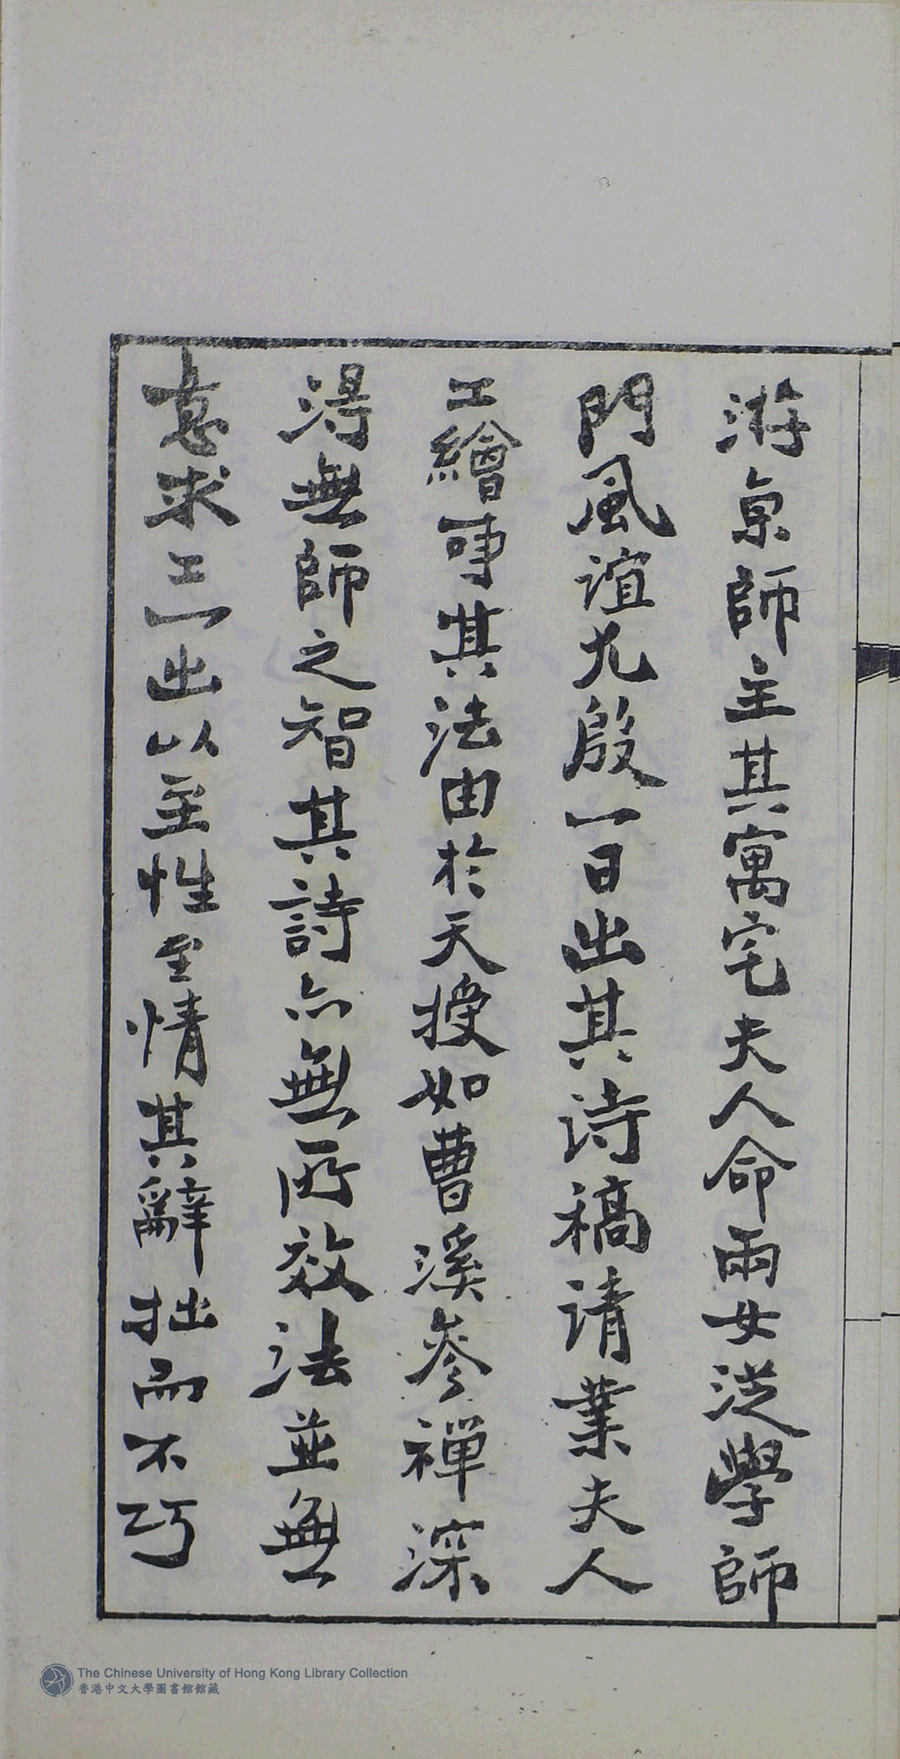 游京師主其寓宅夫人命兩女從學師
門風誼尤殷一日出其诗稿请業夫人
工繪事其法由於天授如曹溪參禪深
得無師之智其詩亦無所效法並無
意求工出以至性至情其辭拙而不巧
The Chinese University of Hong Kong Library Collection
香港中文大學圖書館館藏